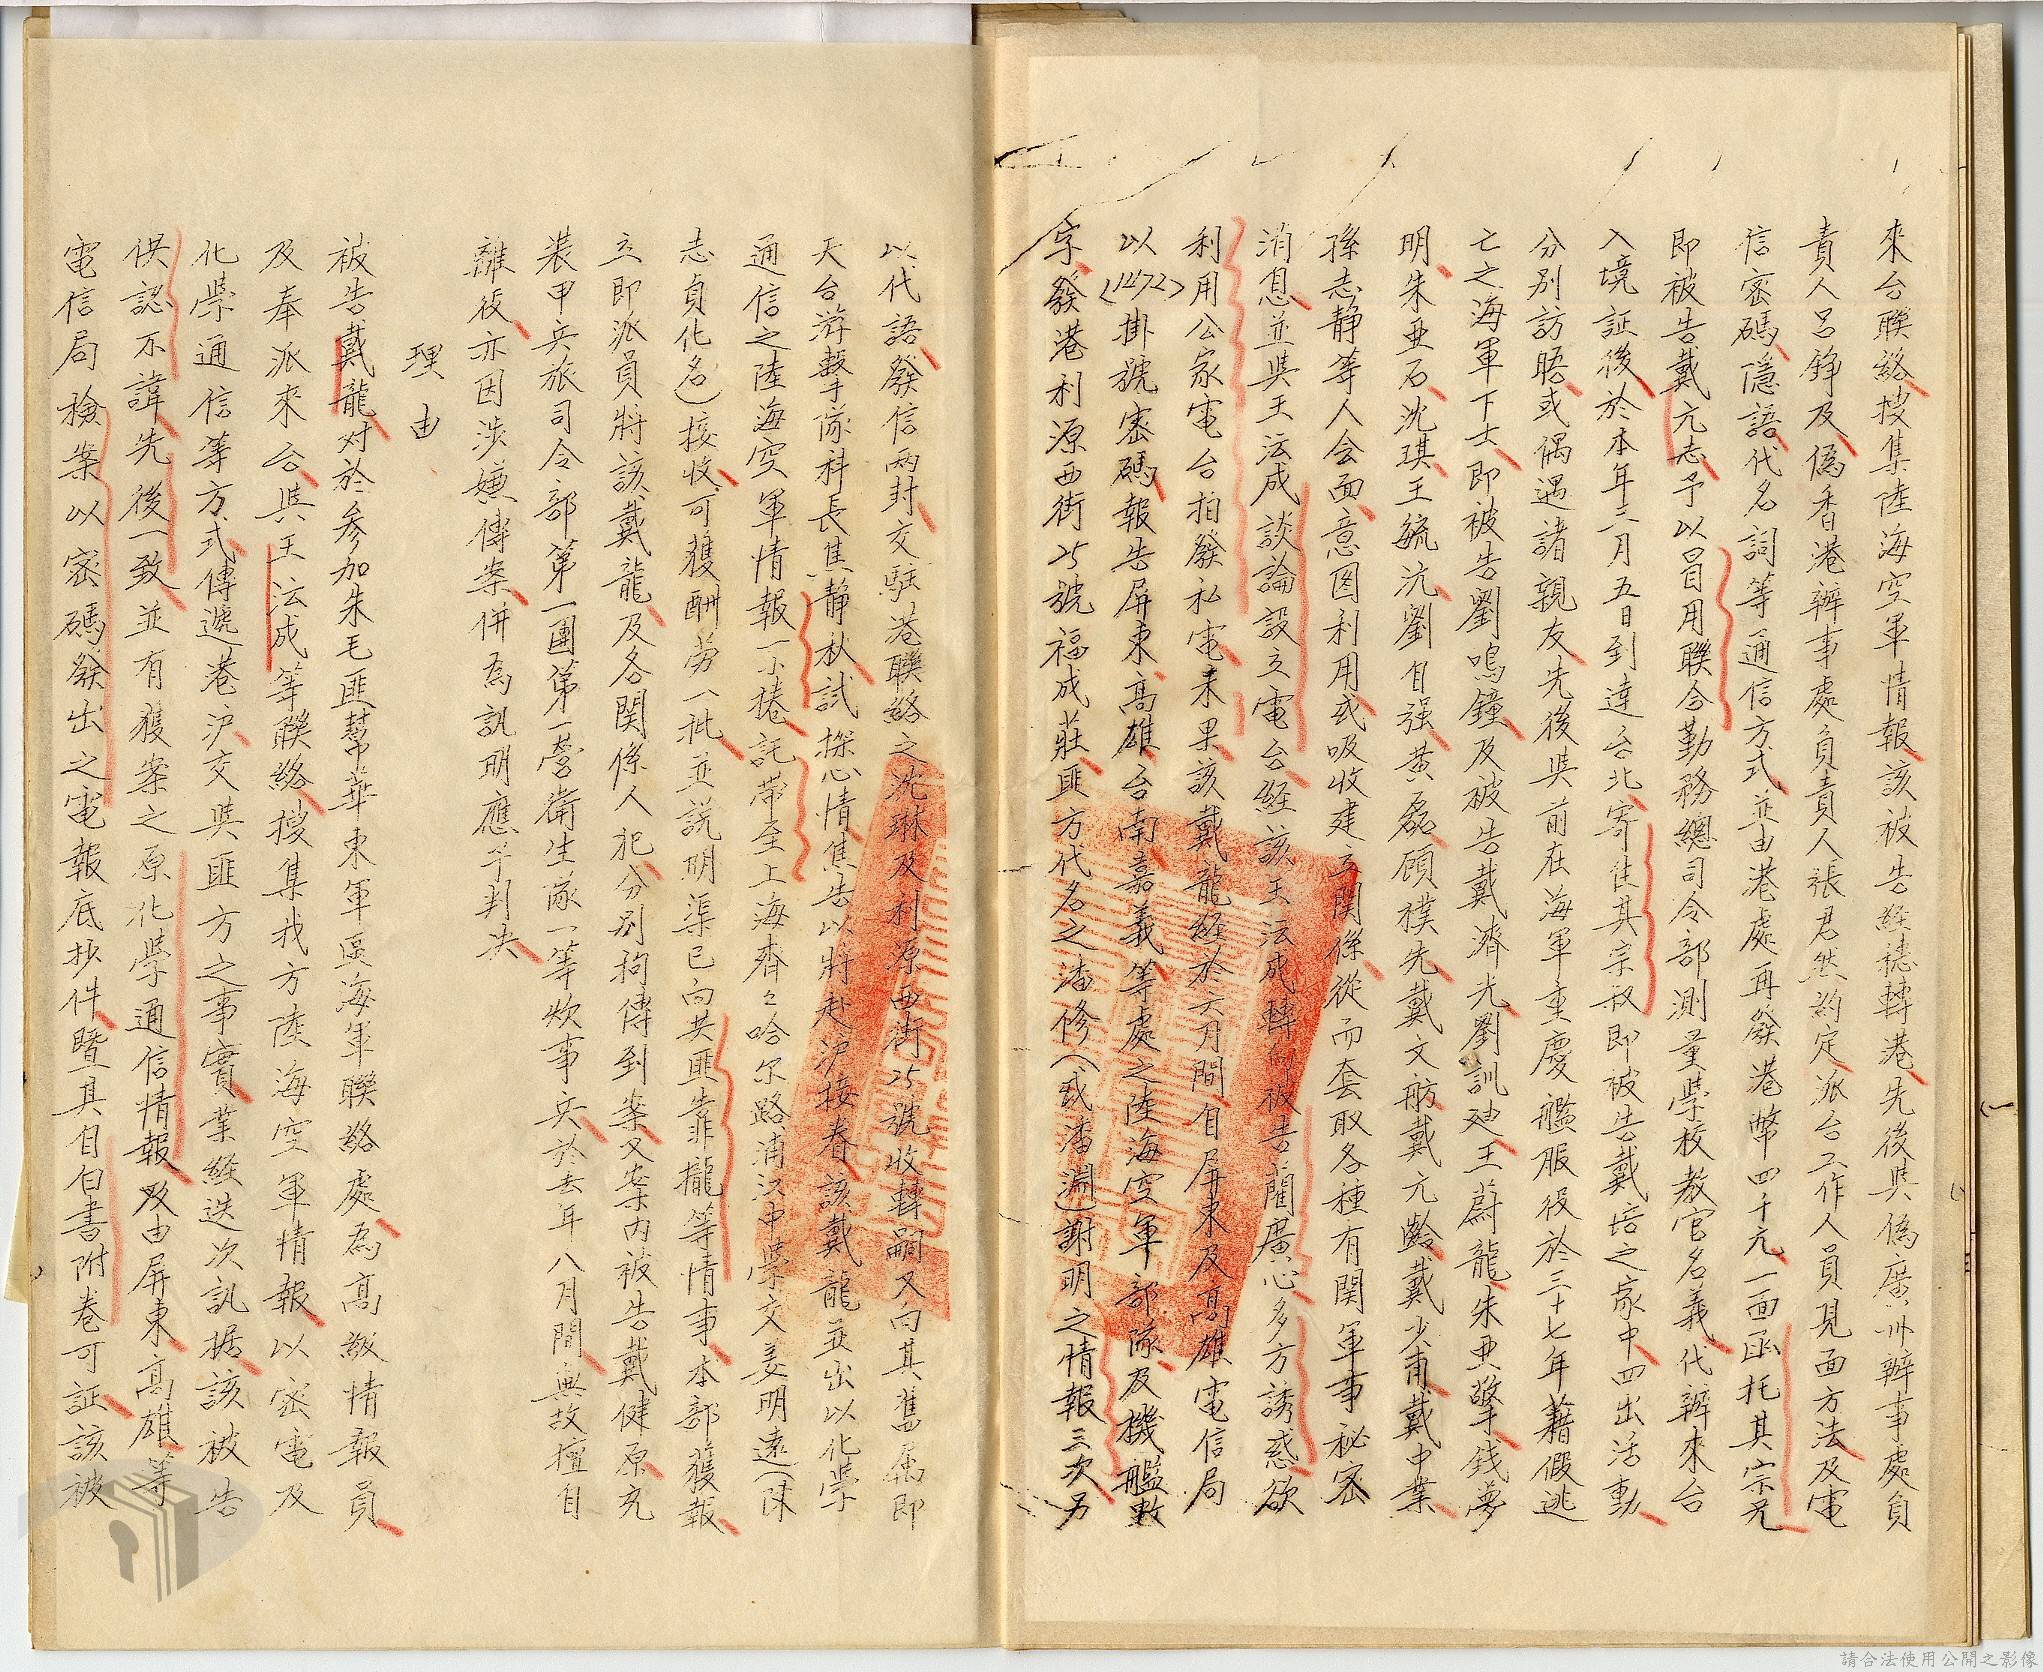 來台聯絡搜集陸海空軍情報該被告經穗轉港先後與偽廣州辦事處負
責人呂錚及偽香港辦事處負責人張君然約定派台工作人員見面方法及電
信密碼隱語代名詞等通信方式並由港處再發港幣四千元一面函托其宗兄
即被告戴元志予以冒用聯合勤務總司令部測量學校教官名義代辦來台
入境証後於本年三月五日到達台北寄住其宗叔即被告戴培之家中四出活動
分別訪晤或偶遇諸親友先後與前在海軍重慶艦服役於三十七年藉假逃
亡之海軍下士即被告劉鳴鐘及被告戴濟光劉訓建王蔚龍朱亞擎錢夢
明朱亜石沈琪王毓沆劉自强黃磊顧樸先戴文舫戴元齡戴少甫戴中業
孫志靜等人会面意図利用或吸收建立関係從而套取各種有関軍事秘密
消息並與王法成談論設立電台経該王法成轉向被告藺廣心多方誘惑欲
利用公家電台拍發私電未果該戴龍経於六月間自屏東及高雄電信局
以(1272)掛號密碼報告屏東高雄台南嘉義等處之陸海空軍部隊及機艦數
字發港利源西街25號福成莊匪方代名之潘修(或潘淵)謝明之情報三次另
以代語發信兩封交駐港聯絡之沈琳及利源西街25號收轉嗣又向其舊屬即
天台游擊隊科長焦靜秋試探心情焦告以將赴沪接眷該戴龍並出以化學
通信之陸海空軍情報一小捲託帶至上海齊々哈尔路浦江中學交姜明遠(陳
志貞化名)接收可獲酬劳一批並説明渠已向共匪靠攏等情事本部獲報
立即派員將該戴龍及各関係人犯分別拘傳到案又案內被告戴健原充
裝甲兵旅司令部第一團第一營衛生隊一等炊事兵於去年八月間無故擅自
離役亦因涉嫌傳案併為訊明應予判决
理由
被告戴龍对於參加朱毛匪幫華東軍區海軍聯絡處為高級情報員
及奉派來台與王法成等聯絡搜集我方陸海空軍情報以密電及
化學通信等方式傳遞港沪交與匪方之事實業経迭次訊据該被告
供認不諱先後一致並有獲案之原化學通信情報及由屏東高雄等
電信局檢案以密碼發出之電報底抄件暨其自白書附卷可証該被
請合法使用公開之影像